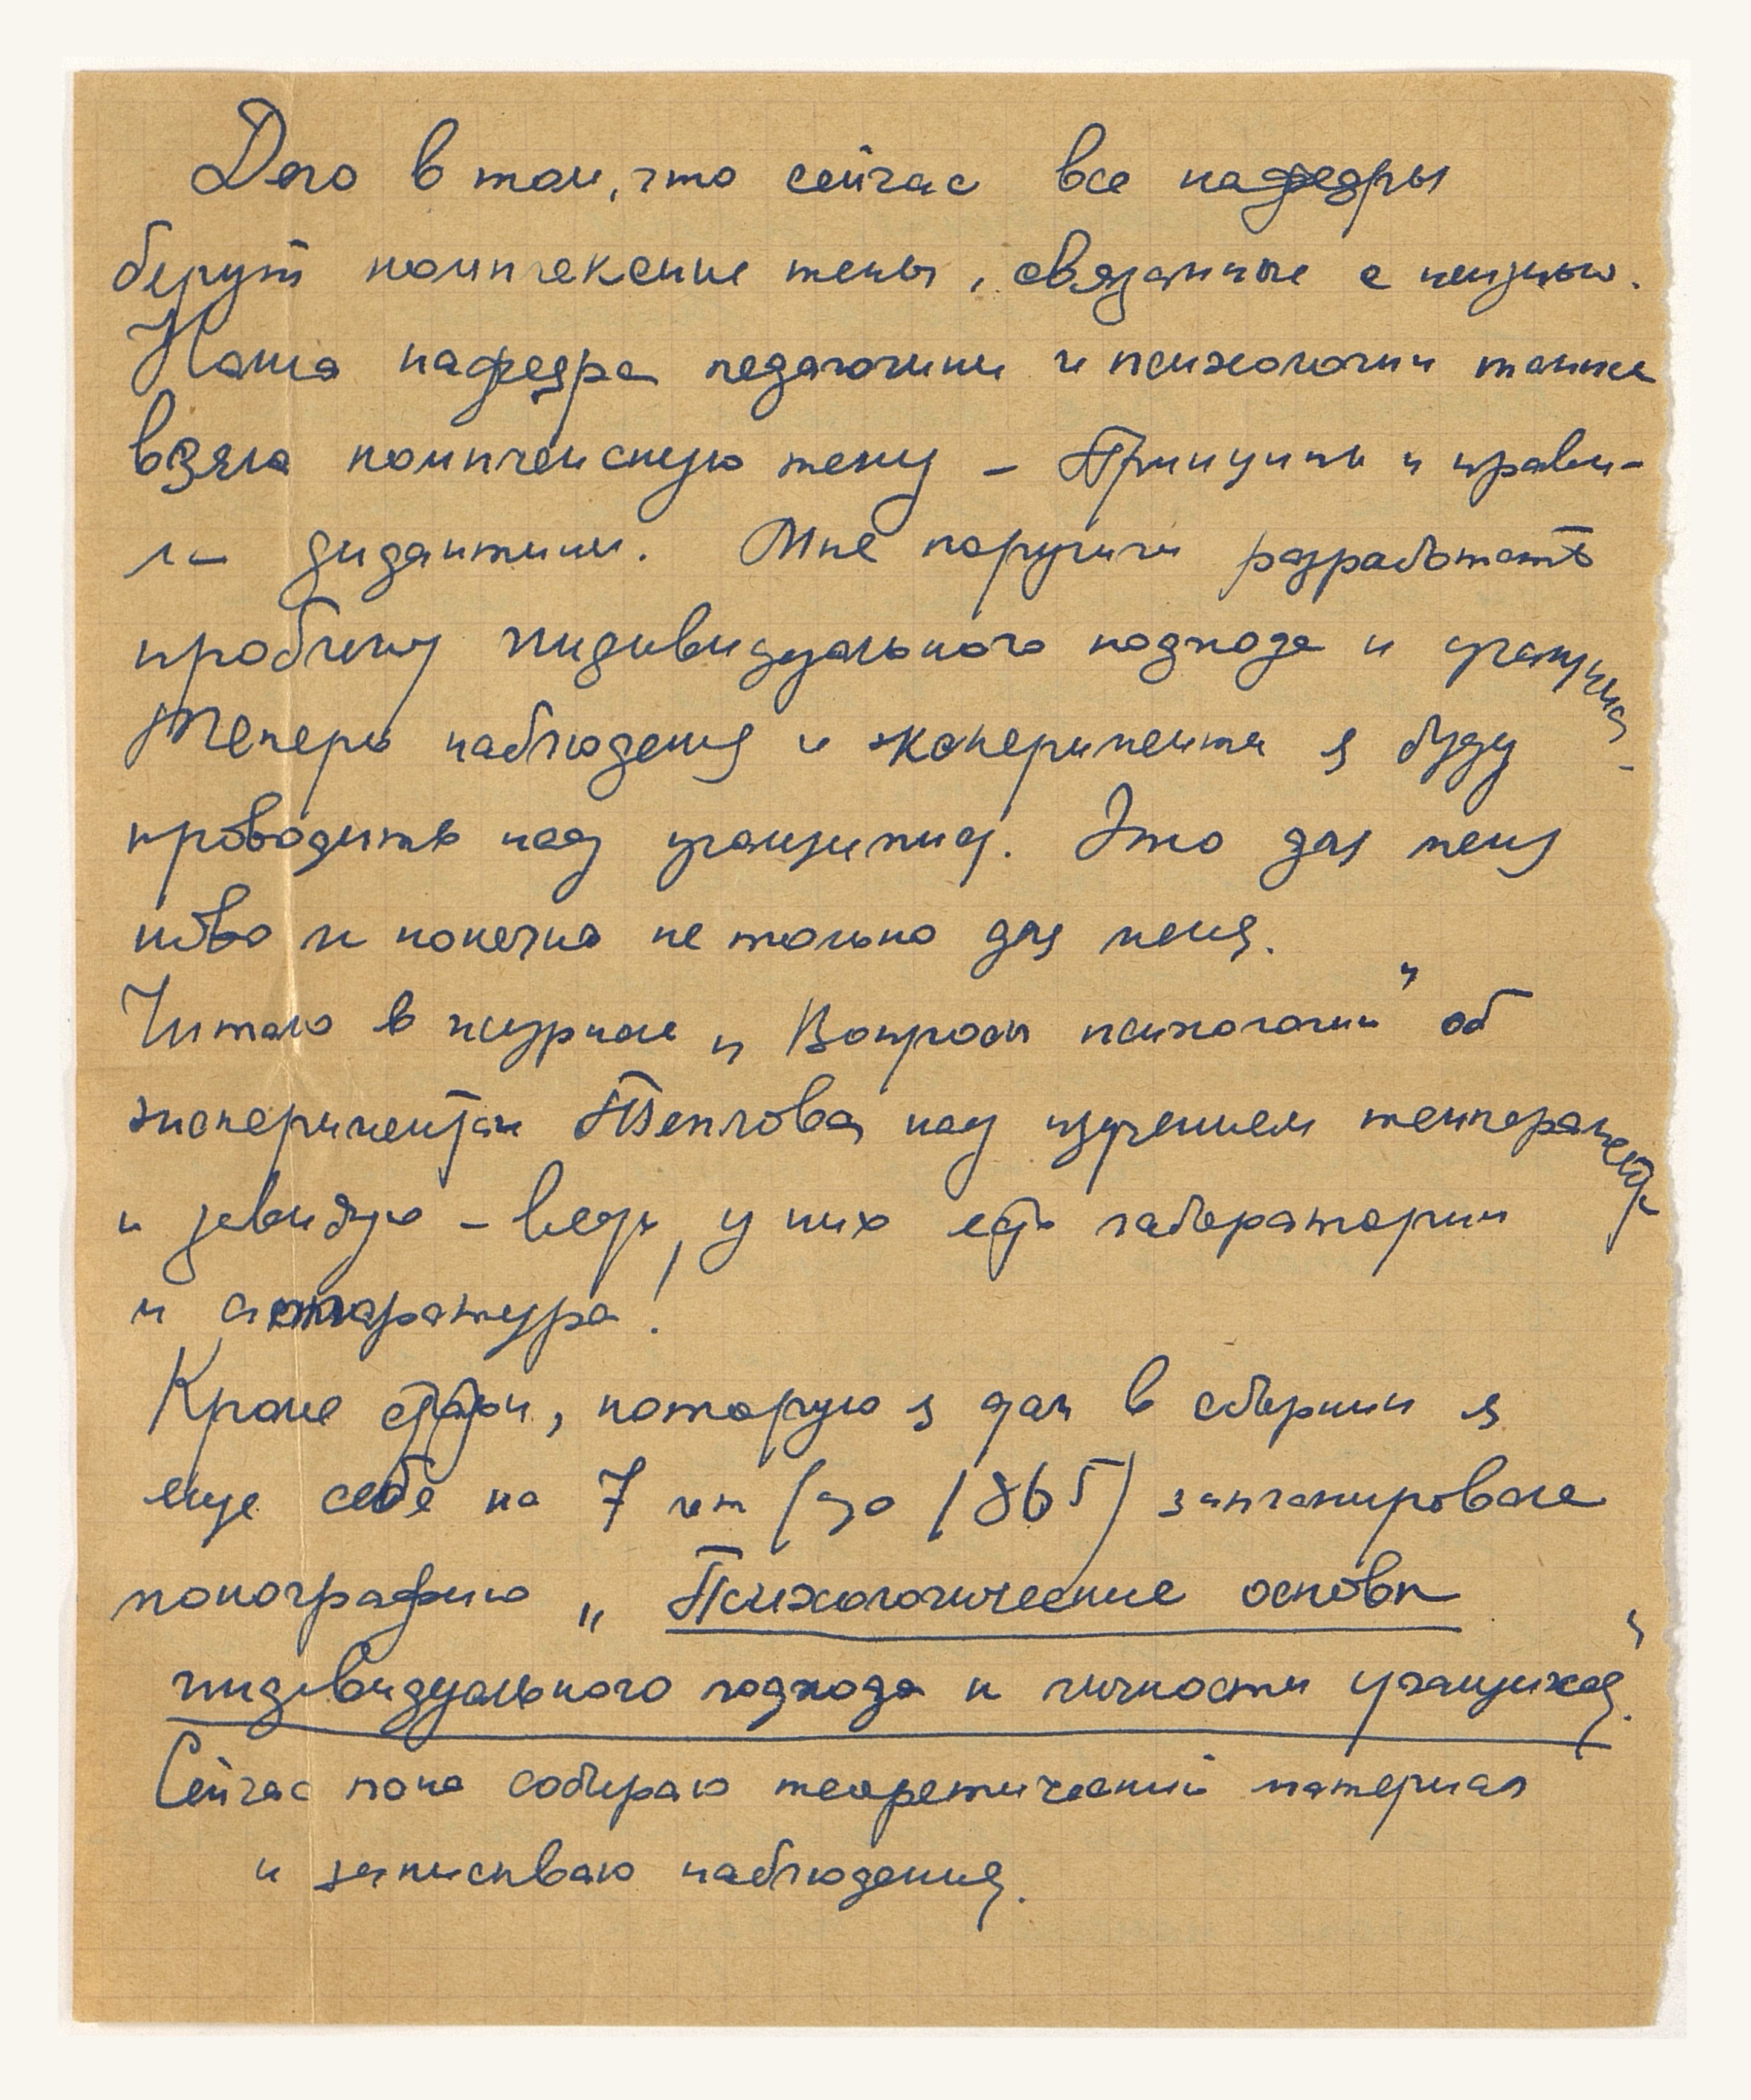 Дело в том, что сейчас все кафедры
берут комплексные темы, связанные с жизнью.
Наша кафедра педагогики и психологии также
взяла комплексную тему – Принципы и прави-
ла дидактики. Мне поручили разработать
проблему индивидуального подхода к учащимся.
Теперь наблюдения и эксперименты я буду
проводить над учащимися. Это для меня
ново и конечно не только для меня.
Читаю в журнале „Вопросы психологии" об
экспериментах Теплова над изучением темперамента
и завидую – ведь, у них есть лаборатории
и аппаратура!
Кроме статьи, которую я дал в сборник я
еще себе на 7 лет (до 1865) запланировал
монографию „Психологические основы
индивидуального подхода к личности учащихся".
Сейчас пока собираю теоретический материал
и записываю наблюдения.